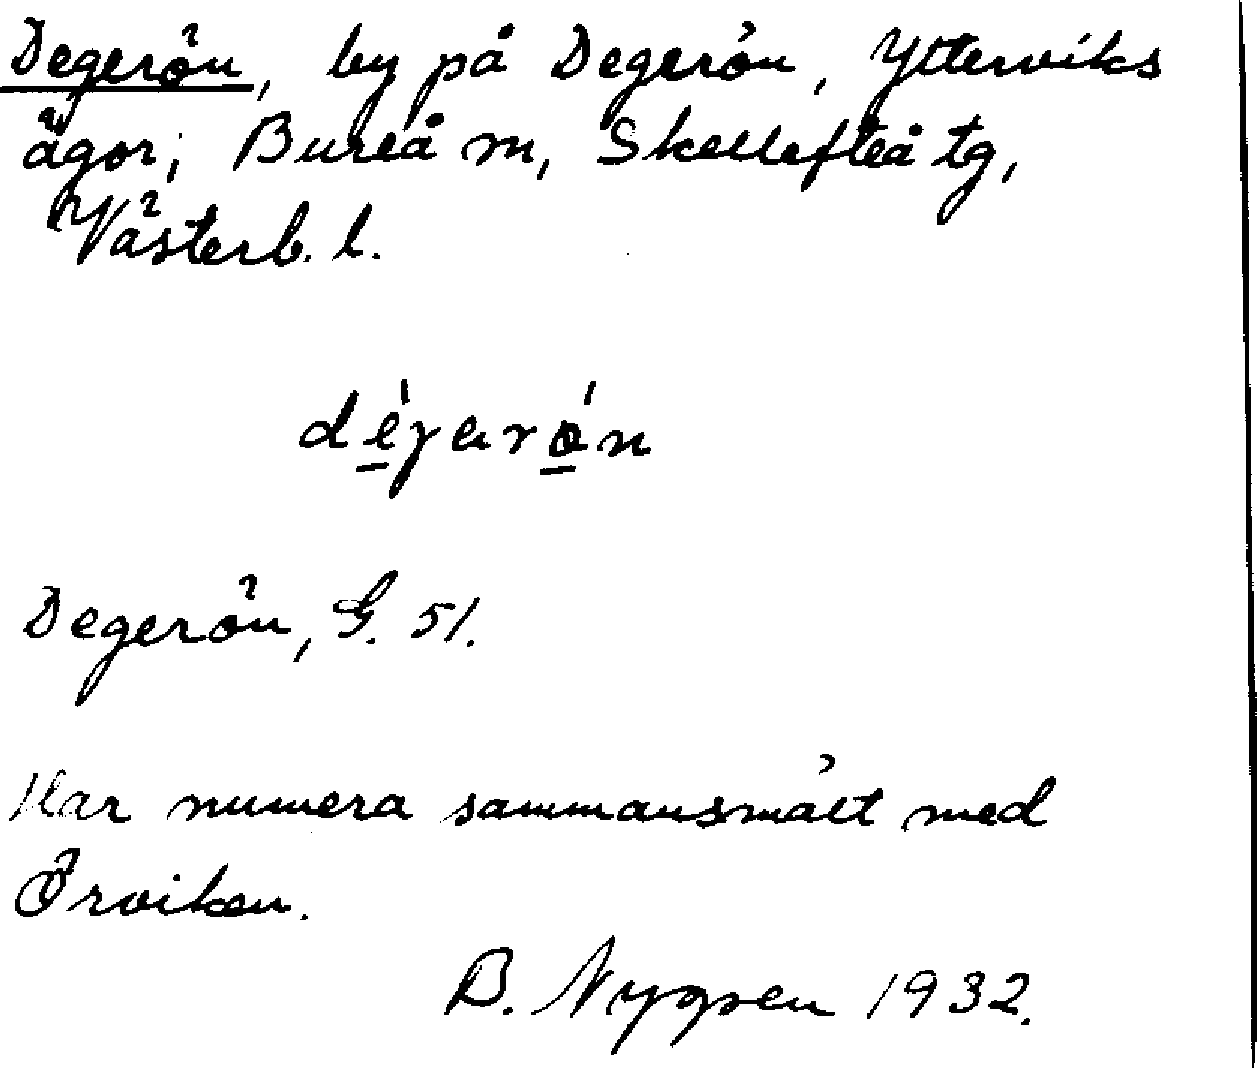 Degerön, by på Degerön, Ytterviks
ägor; Bureå m, Skellefteå tg,
Västerb. l.
déɡarön
Degerön, G. 51.
Har numera sammansmält med
Örviken.
B. Nygren 1932.